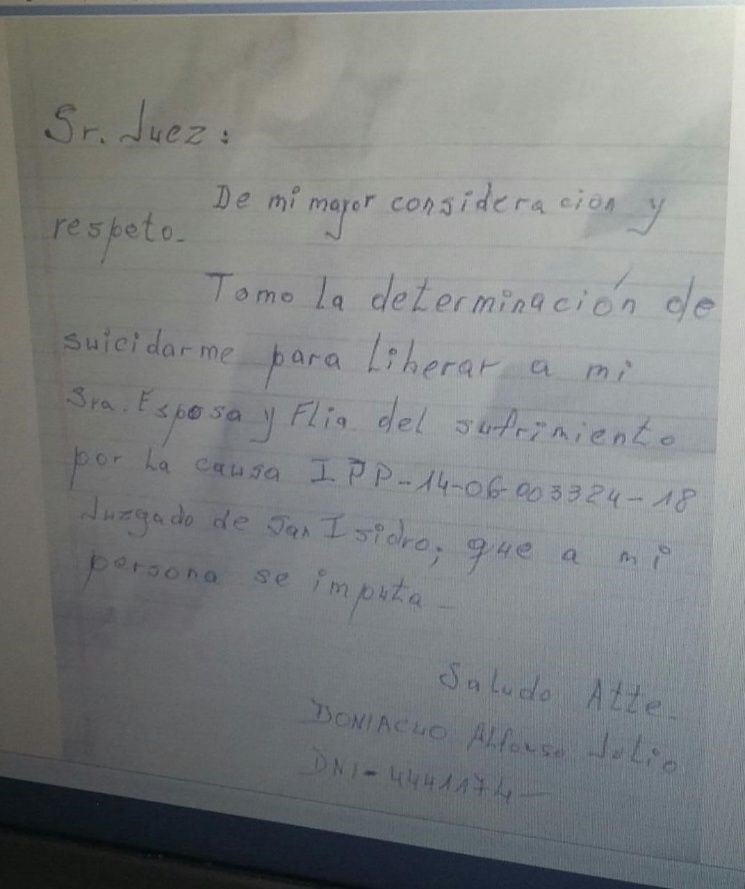 Sr. Juez:
De mi mayor consideracion y
respeto.
Tomo la determinación de
suicidarme para liberar a mi
Sra. Esposa y Flia del sufrimiento
por la causa IPP-14-06-003324-18
Juzgado de San Isidro; que a mi
persona se imputa -
Saludo Atte.
Alfonso Julio
DNI-4441174-